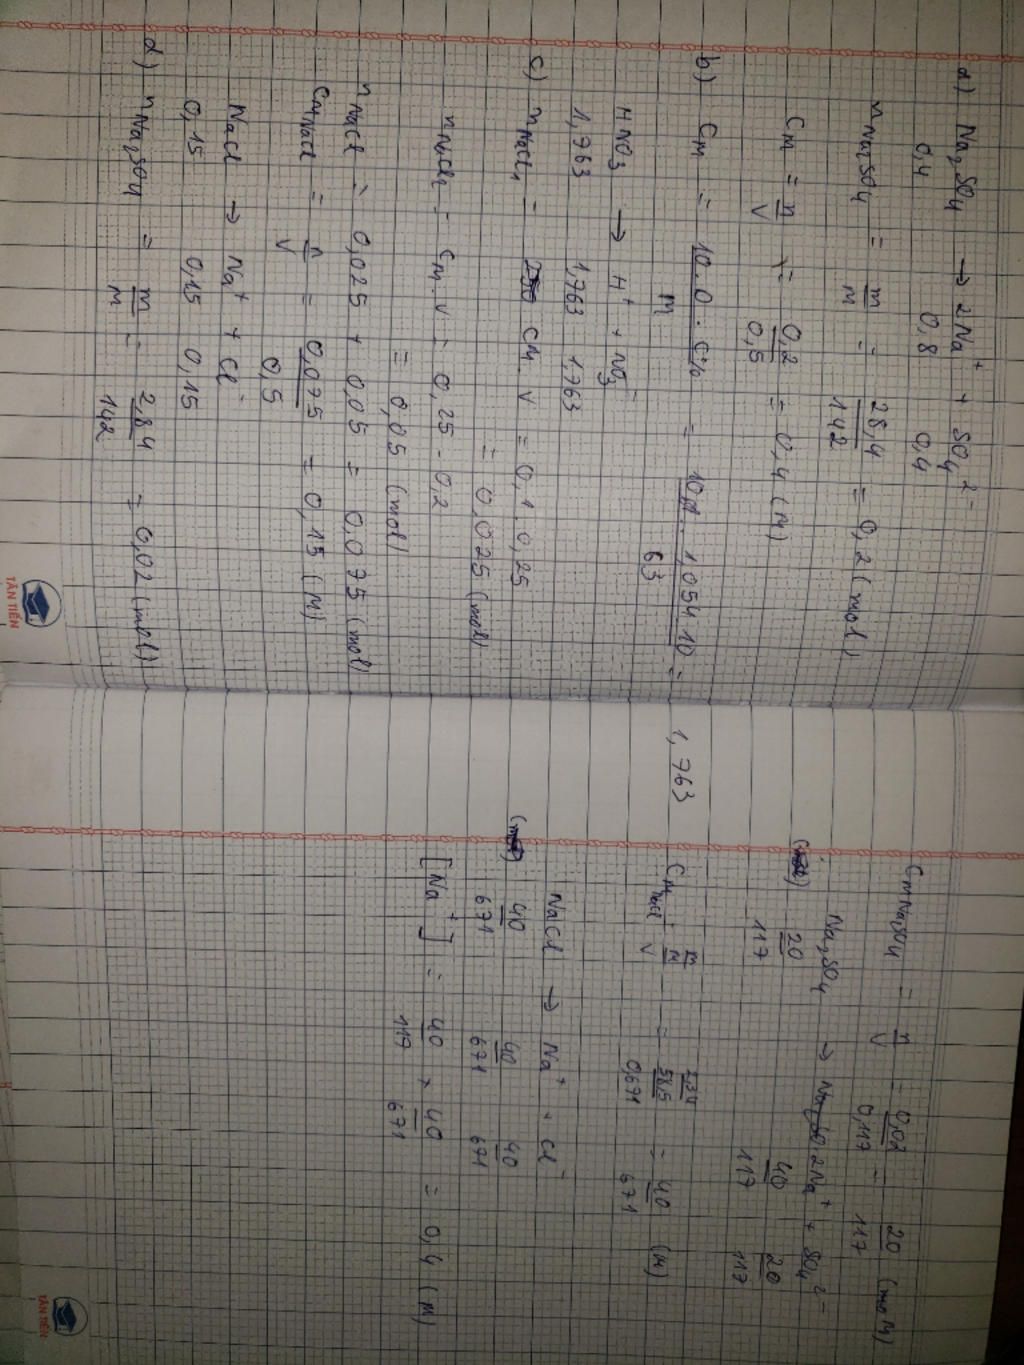 a) Na₂SO₄ → 2Na⁺ + SO₄²⁻
0,4 0,8 0,4
nNa₂SO₄ = m/M = 28,4/142 = 0,2 (mol)
Cm = n/V = 0,2/0,5 = 0,4 (M)
b) Cm = 10.D.C%/M = 10.1,054.10/63 = 1,763
HNO₃ → H⁺ + NO₃⁻
1,763 1,763 1,763
c) nNaCl₁ = CM.V = 0,1.0,25
= 0,025 (mol)
nNaCl₂ = Cm.V = 0,25.0,2
= 0,05 (mol)
nNaCl = 0,025 + 0,05 = 0,075 (mol)
CmNaCl = n/V = 0,075/0,5 = 0,15 (M)
NaCl → Na⁺ + Cl⁻
0,15 0,15 0,15
d) nNa₂SO₄ = m/M = 2,84/142 = 0,02 (mol)
TÂN TIẾN
CmNa₂SO₄ = n/V = 0,02/0,117 = 20/117
Na₂SO₄ → 2Na⁺ + SO₄²⁻
20/117 40/117 20/117
CmNaCl = m/M/V = /58,5/0,671 = 40/671 (M)
NaCl → Na⁺ + Cl⁻
40/671 40/671 40/671
[Na⁺] = 40/117 + 40/671 = 0,4 (M)
TÂN TIẾN